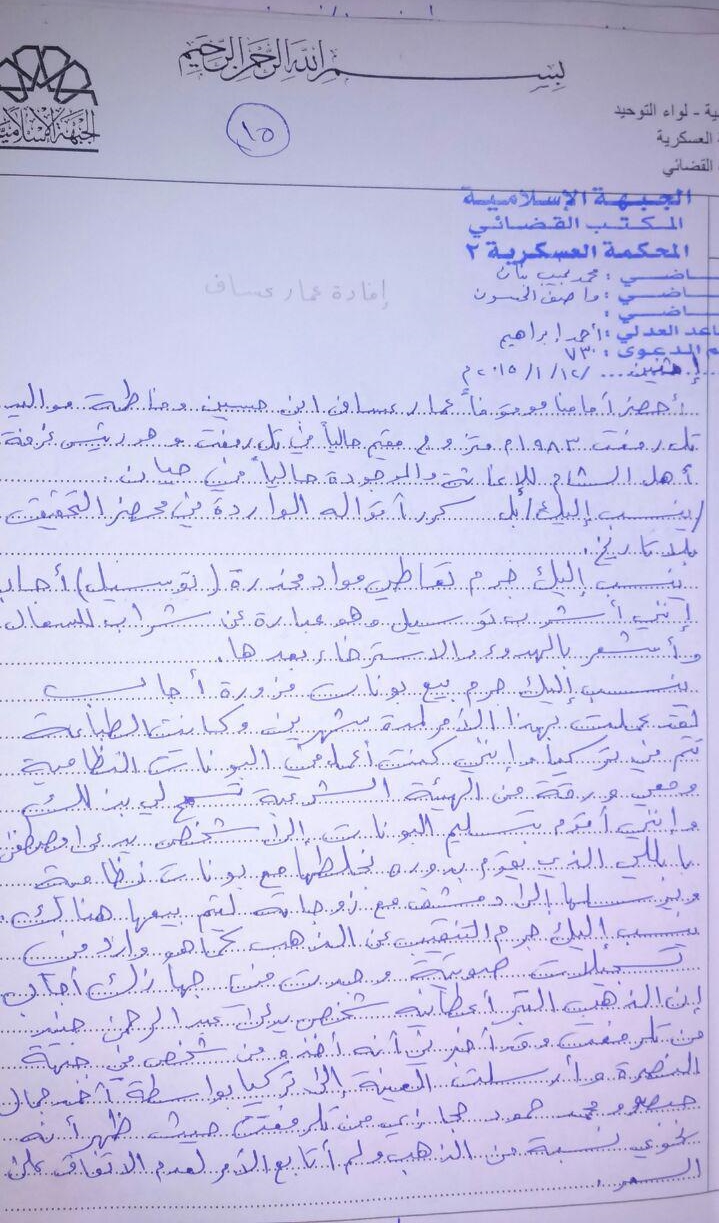 بسم الله الرحمن الرحيم
الجبهة الإسلامية
ية - لواء التوحيد
العسكرية
القضائي
١٥
الجبهة الإسلامية
المكتب القضائي
المحكمة العسكرية ٢
ـاضـي : محمد نجيب بنان
ـاضـي : واصف الحسون
ـاضـي :
إفادة عمار عساف
ـاعد العدلي : أحمد إبراهيم
ـم الدعوى : ٧٣٠
إثنين ... ١٢/ ١/ ٢٠١٥م
أحضر أمامنا موقوفاً عمار عساف ابن حسين وفاطمة مواليد
تل رفعت ١٩٨٣م متزوج مقيم حالياً في تل رفعت وهو رئيس غرفة
أهل الشام للإغاثة والموجودة حالياً في حيان .
ينسب إليك كرر أقواله الواردة في محضر التحقيق
بلا تاريخ .
ينسب إليك جرم تعاطي مواد مخدرة (توسيل) أجاب
إنني أشرب توسيل وهو عبارة عن شراب للسعال
وأشعر بالهدوء والاسترخاء بعدها .
ينسب إليك جرم بيع بونات مزورة أجاب
لقد عملت بهذا الأمر لمدة شهرين وكانت الطباعة
تتم في تركيا وإنني كنت أعمل في البونات النظامية
ومعي ورقة من الهيئة الشرعية تسمح لي بذلك
وإنني أقوم بتسليم البونات إلى شخص يدعى مصطفى
الذي يقوم بدوره بخلطها مع بونات نظامية
ويرسلها إلى دمشق مع ليتم بيعها هنالك .
ينسب إليك جرم التنقيب عن الذهب كما هو وارد من
تسجيلات صوتية وجدت في جهازك أجاب
إن الذهب التبر أعطانيه شخص يدعى عبد الرحمن
من تل رفعت وقد أخبرني أنه أخذه من شخص في جبهة
النصرة وأرسلت العينة إلى تركيا بواسطة
ومحمد حمود حجازي من تل رفعت حيث ظهر أنه
يحوي نسبة من الذهب ولم أتابع الأمر لعدم الاتفاق على
السعر .